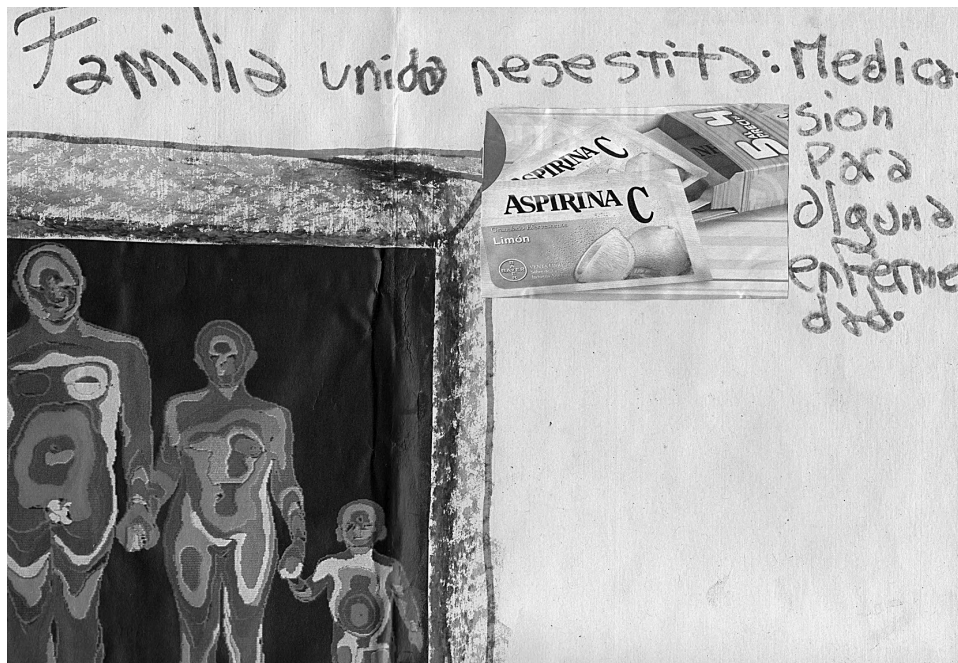 Familia unida nesesita: Medica-
sion
Para
alguna
enferme
dad.
ASPIRINA C
ASPIRINA C
Limón
BAYER